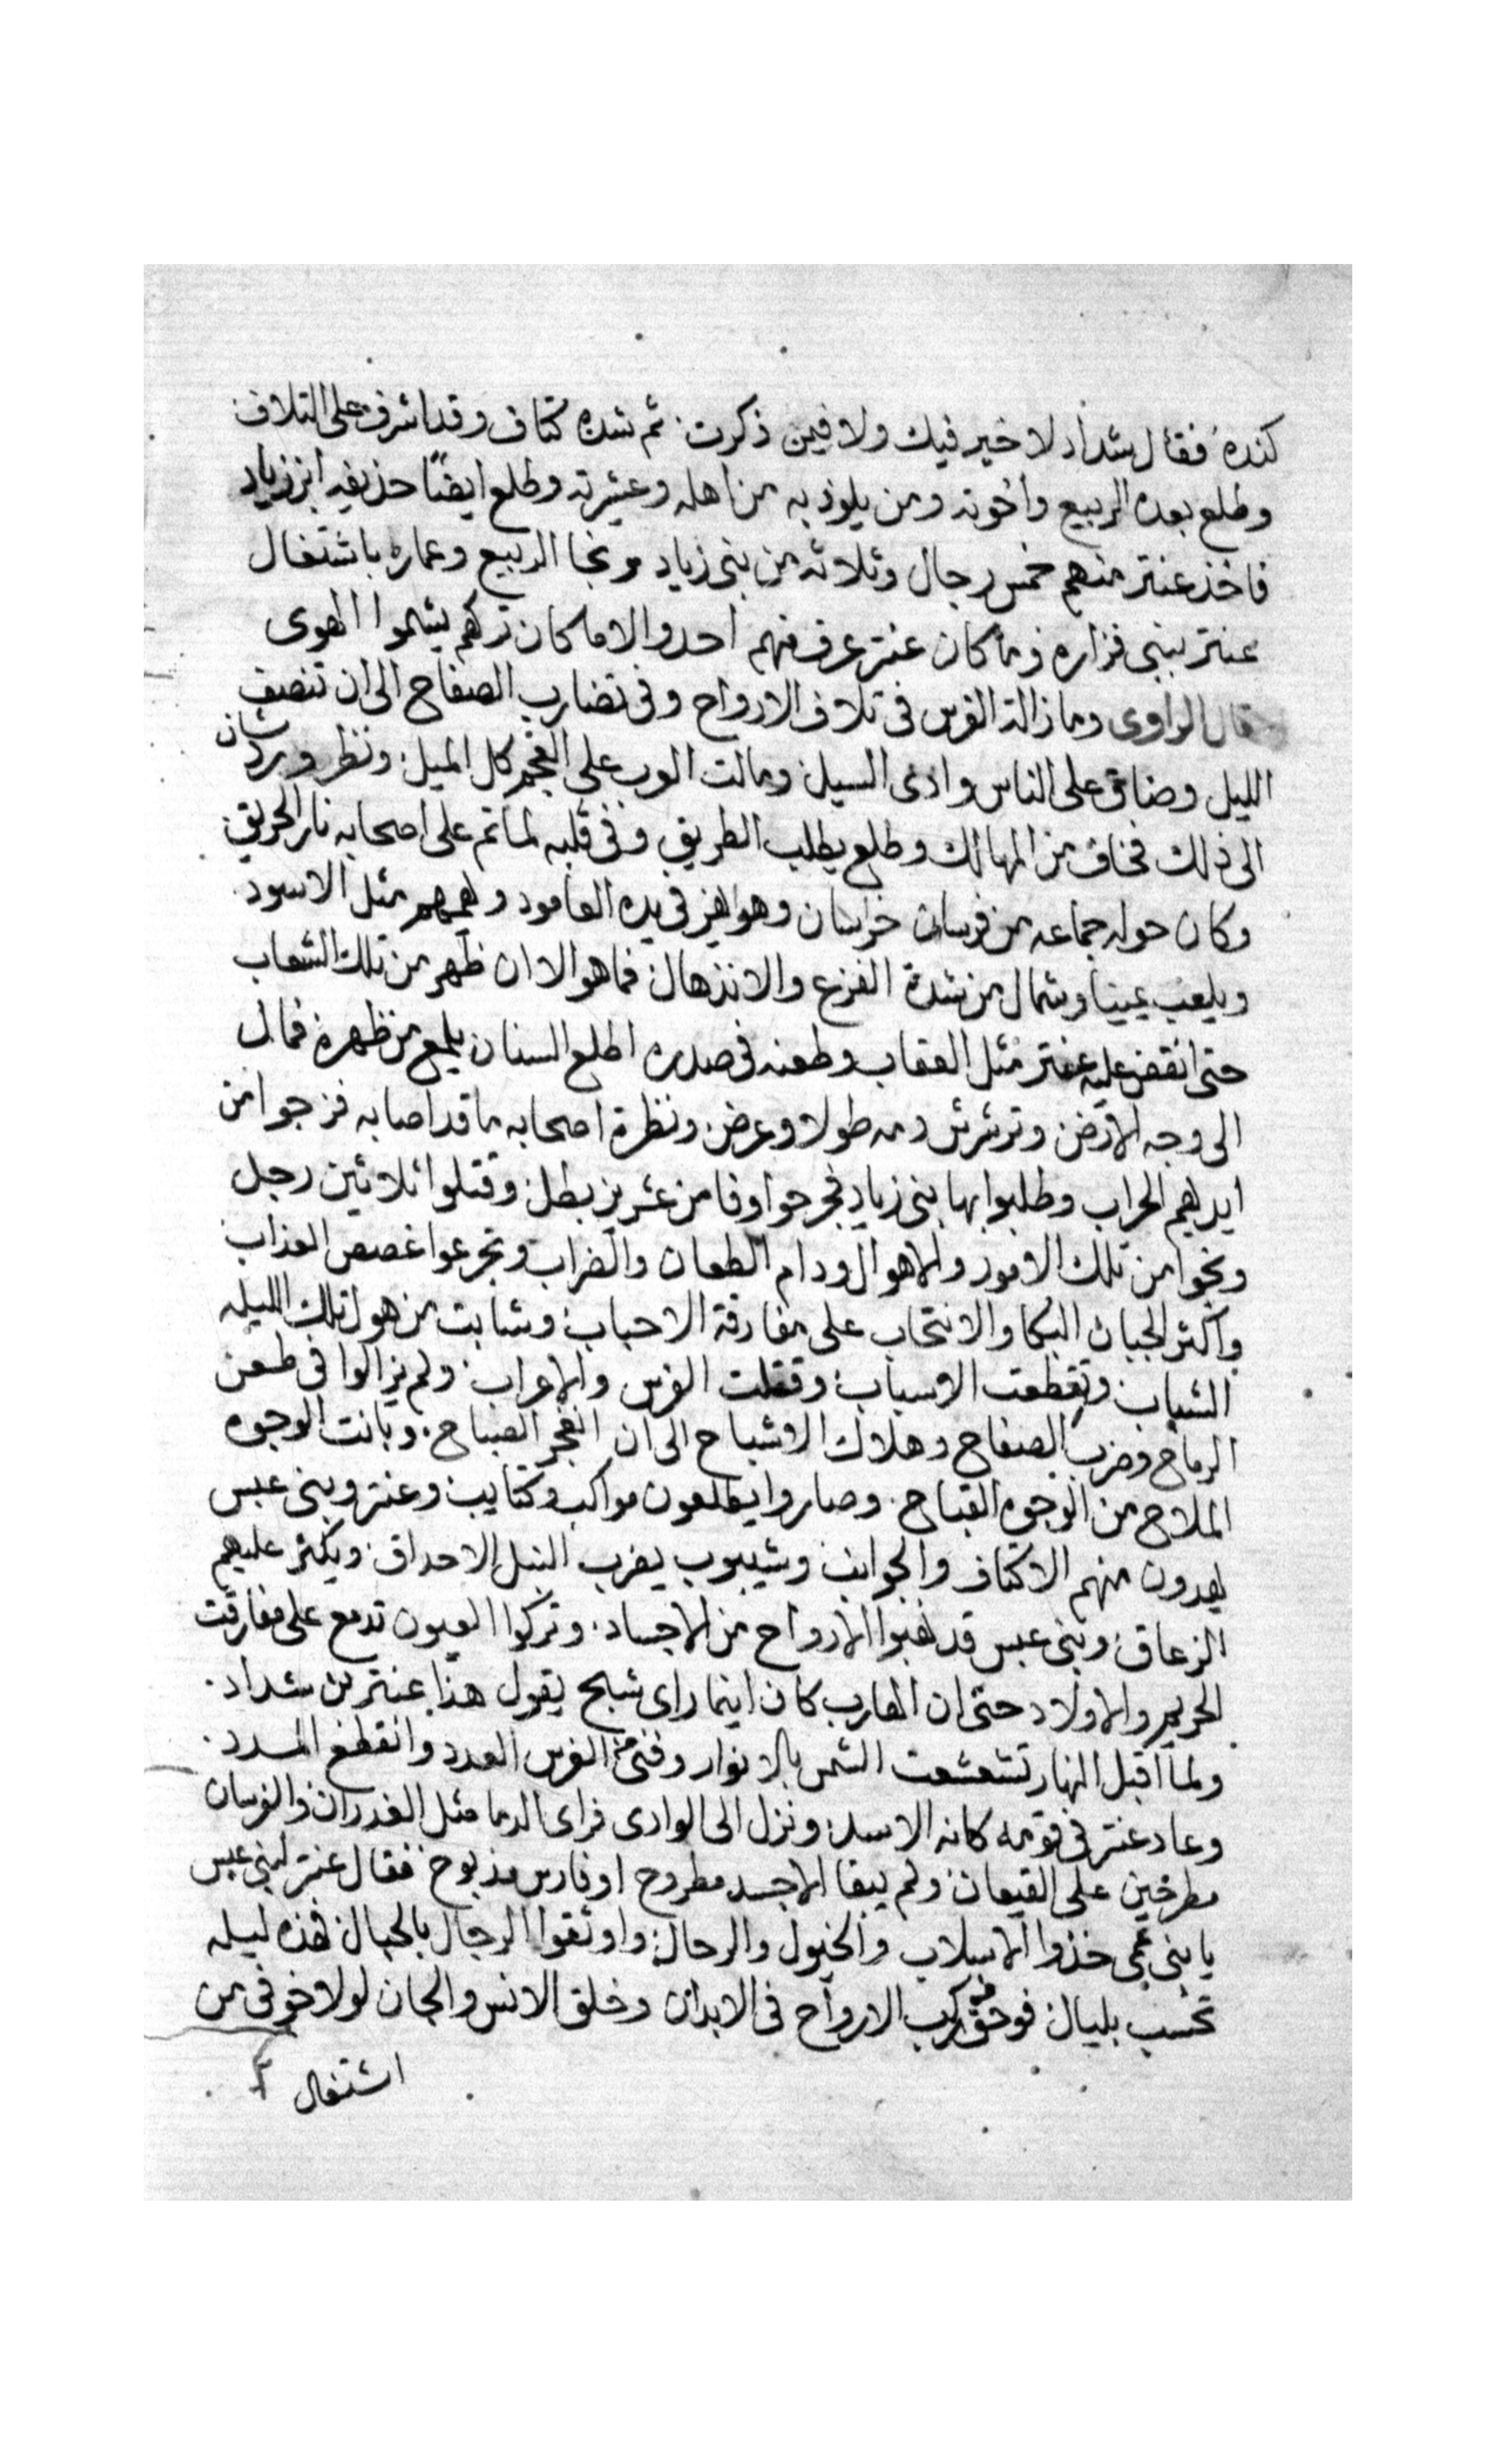 كنده فقال شداد لا خير فيك ولا فيمن ذكرت ثم شده كتاف وقد اشرف على التلاف
وطلع بعده الربيع واخوته ومن يلوذ به من اهله وعشيرته وطلع ايضًا حذيفه ابن زياد
فاخذ عنتر منهم خمس رجال وثلاثه من بنى زياد ونجا الربيع وعماره باشتغال
عنتر ببنى فزاره وما كان عنتر عرف منهم احد والا ما كان تركهم يشموا الهوى
قال الراوى وما زالة الفرس فى تلاف الارواح وفى تضارب الصفاح الى ان تنصف
الليل وضاق على الناس وادى السيل ومالت العرب على العجم كل الميل ونظر وردشان
الى ذلك فخاف من المهالك وطلع يطلب الطريق وفى قلبه لما تم على اصحابه نار الحريق
وكان حوله جماعه من فرسان خراسان وهو يهز فى يده العامود ويهمهم مثل الاسود
ويلعب يمينا وشمال من شدة الفزع والانذهال فما هو الا ان ظهر من تلك الشعاب
حتى انقض عليه عنتر مثل العقاب وطعنه فى صدره اطلع السنان يلمع من ظهره فمال
الى وجه الارض وترشرش دمه طولا وعرض ونظرة اصحابه ما قد اصابه فزجوا من
ايديهم الحراب وطلبوا بها بنى زياد فجرحوا وفا من عشرين بطل وقتلوا ثلاثين رجل
ونجوا من تلك الامور والاهوال ودام الطعان والضراب وتجرعوا غصص العذاب
واكثر الجبان البكا والانتحاب على مفارقة الاحباب وشابت من هول تلك الليله
الشباب وتقطعت الاسباب وقتلت الفرس والاعراب ولم يزالوا فى طعن
الرماح وضرب الصفاح وهلاك الاشباح الى ان انفجر الصباح وبانت الوجوه
الملاح من الوجوه القباح وصاروا يطلعون مواكب وكتايب وعنتر وبنى عبس
يعدون منهم الاكتاف والجوانب وشيبوب يضرب النبل الاحداق ويكثر عليهم
الزعاق وبنى عبس قد نهبوا الارواح من الاجساد وتركوا العيون تدمع على مفارقت
الحريم والاولاد حتى ان الهارب كان اينما راى شبح يقول هذا عنتر بن شداد
ولما اقبل النهار تشعشعت الشمس بالانوار وفنى من الفرس العدد وانقطع المدد
وعاد عنتر فى قومه كانه الاسد ونزل الى الوادى فراى الدما مثل الغدران والفرسان
مطرحين على القيعان ولم يبقا الا جسد مطروح او فارس مذبوح فقال عنتر لبنى عبس
يا بنى عمى خذوا الاسلاب والخيول والرحال واوثقوا الرجال بالحبال فهذه ليله
تحسب بليال فوحق من ركب الارواح فى الابدان وخلق الانس والجان لولا خوفى من
اشتغال